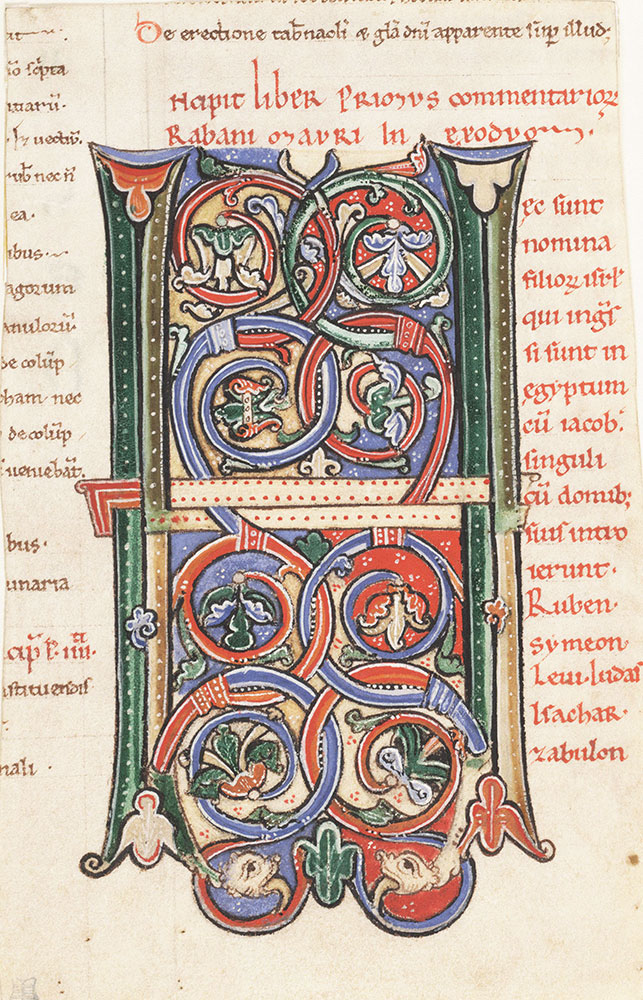 De erectione tab̄naoli & gl̄a dn̄i apparente sup̄ illud;
ncipit liber primus commentarioꝝ
Rabani mauri in exodum.
H
ec sunt
nomina
filioꝝ isr̄l
qui inḡs
si sunt in
egyptum
cū iacob.
singuli
cū domib;
suis intro
ierunt.
Ruben.
symeon
Leui. Iudas
Isachar.
zabulon
sc̄pta
tiarū.
nec n̄
ea.
ibus.
agorum
anulorū.
de colūp
ham. nec
de colūp
ueniebāt.
bus.
unaria
cap̄l. iiii.
nstituendis
nali.